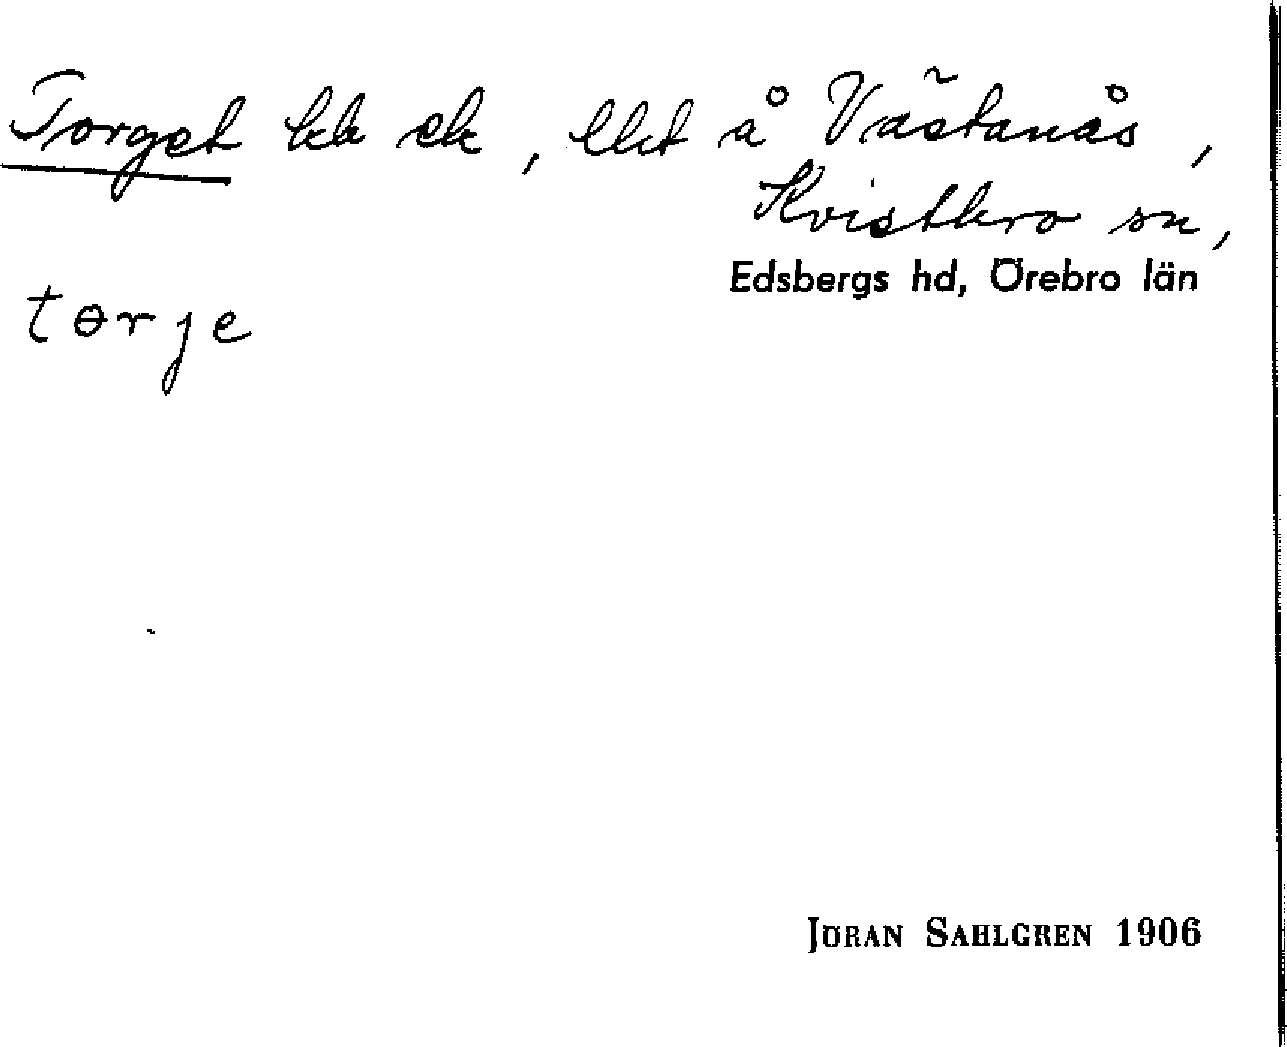 Torget bb ek, ll

Torget
å Västanås,
Kvistbro sn,
Edsbergs hd, Örebro län
tɵrje
JÖRAN SAHLGREN 1906